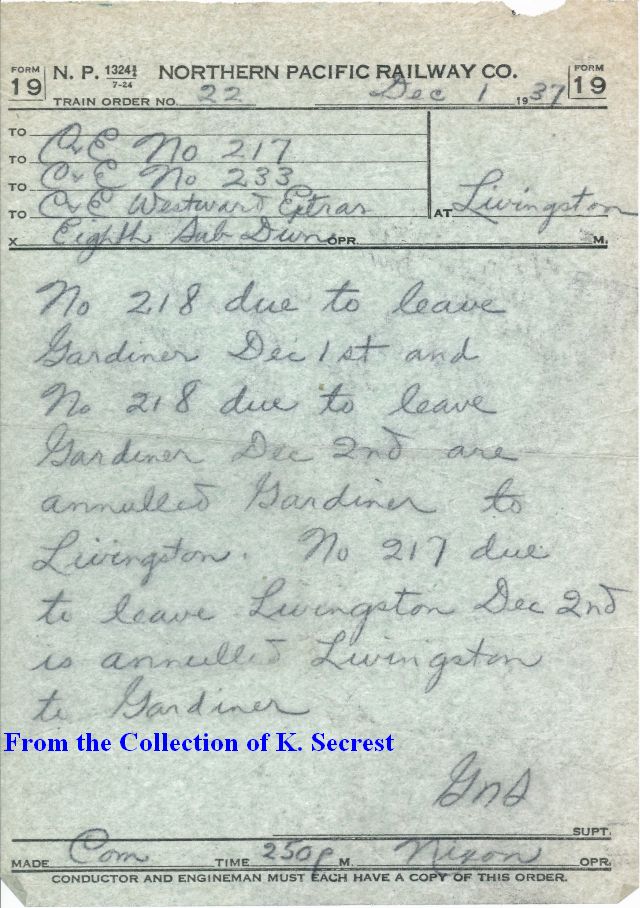 FORM 19 N. P. 1324½ 7-24 NORTHERN PACIFIC RAILWAY CO. FORM 19
TRAIN ORDER NO. 22 Dec 1 1937
TO C&E No 217
TO C&E No 233
TO C&E Westward Extras
TO Eighth Sub Divn AT Livingston
X OPR. M.
No 218 due to leave
Gardiner Dec 1st and
No 218 due to leave
Gardiner Dec 2nd are
annulled Gardiner to
Livingston. No 217 due
to leave Livingston Dec 2nd
is annulled Livingston
to Gardiner
From the Collection of K. Secrest
GNS
SUPT.
MADE Com TIME 250p M. Nixon OPR.
CONDUCTOR AND ENGINEMAN MUST EACH HAVE A COPY OF THIS ORDER.